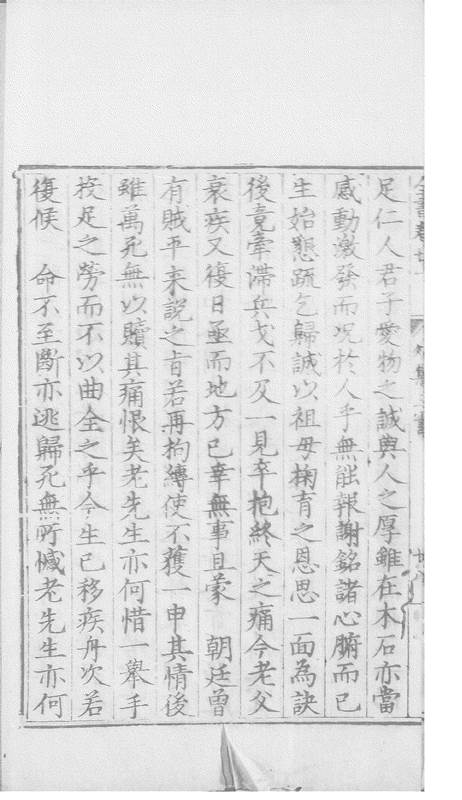 足仁人君子愛物之誠與人之厚雖在木石亦當
感動激發而况於人乎無能報謝銘諸心腑而已
生始懇疏乞歸誠以祖母鞠育之恩思一面為訣
後竟牽滯兵戈不及一見卒抱終天之痛今老父
衰疾又復日亟而地方已幸無事且蒙　朝廷曾
有賊平来說之旨若再拘縛使不獲一申其情後
雖萬死無以贖其痛恨矣老先生亦何惜一舉手
投足之勞而不以曲全之乎今生已移疾舟次若
復候　命不至斷亦逃歸死無所憾老先生亦何